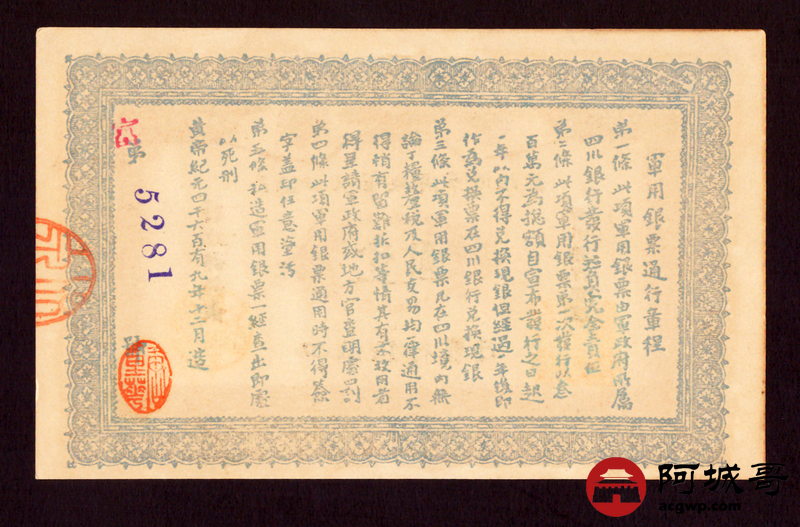 軍用銀票通行章程
第一條 此項軍用銀票由軍政府所屬
四川銀行發行担負完全責任
第二條 此項軍用銀票第一次發行以叁
百萬元為總額自宣布發行之日起
一年以內不得兌換現銀但經過一年後即
作為兌換票在四川銀行兌換現銀
第三條 此項軍用銀票凡在四川境內無
論丁糧釐稅及人民交易均一律通用不
得稍有留難折扣等情其有不收用者
得呈請軍政府或地方官查明處罰
第四條 此項軍用銀票通用時不得簽
字蓋印任意塗污
第五條 私造軍用銀票一經查出即處
以死刑
黃帝紀元四千六百有九年十二月造
第 5281 號
阿城哥
acgwp.com